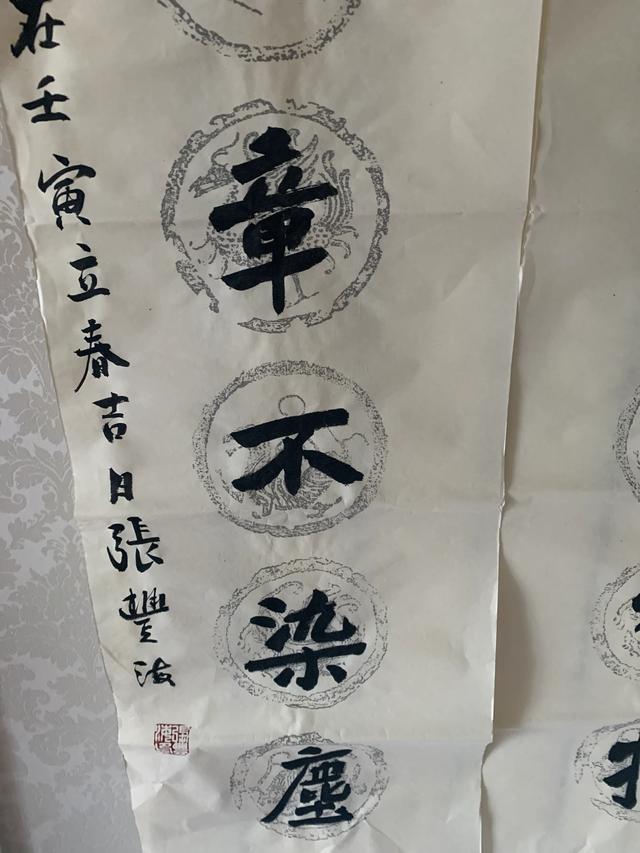 章不染塵
在壬寅立春吉日張豐海